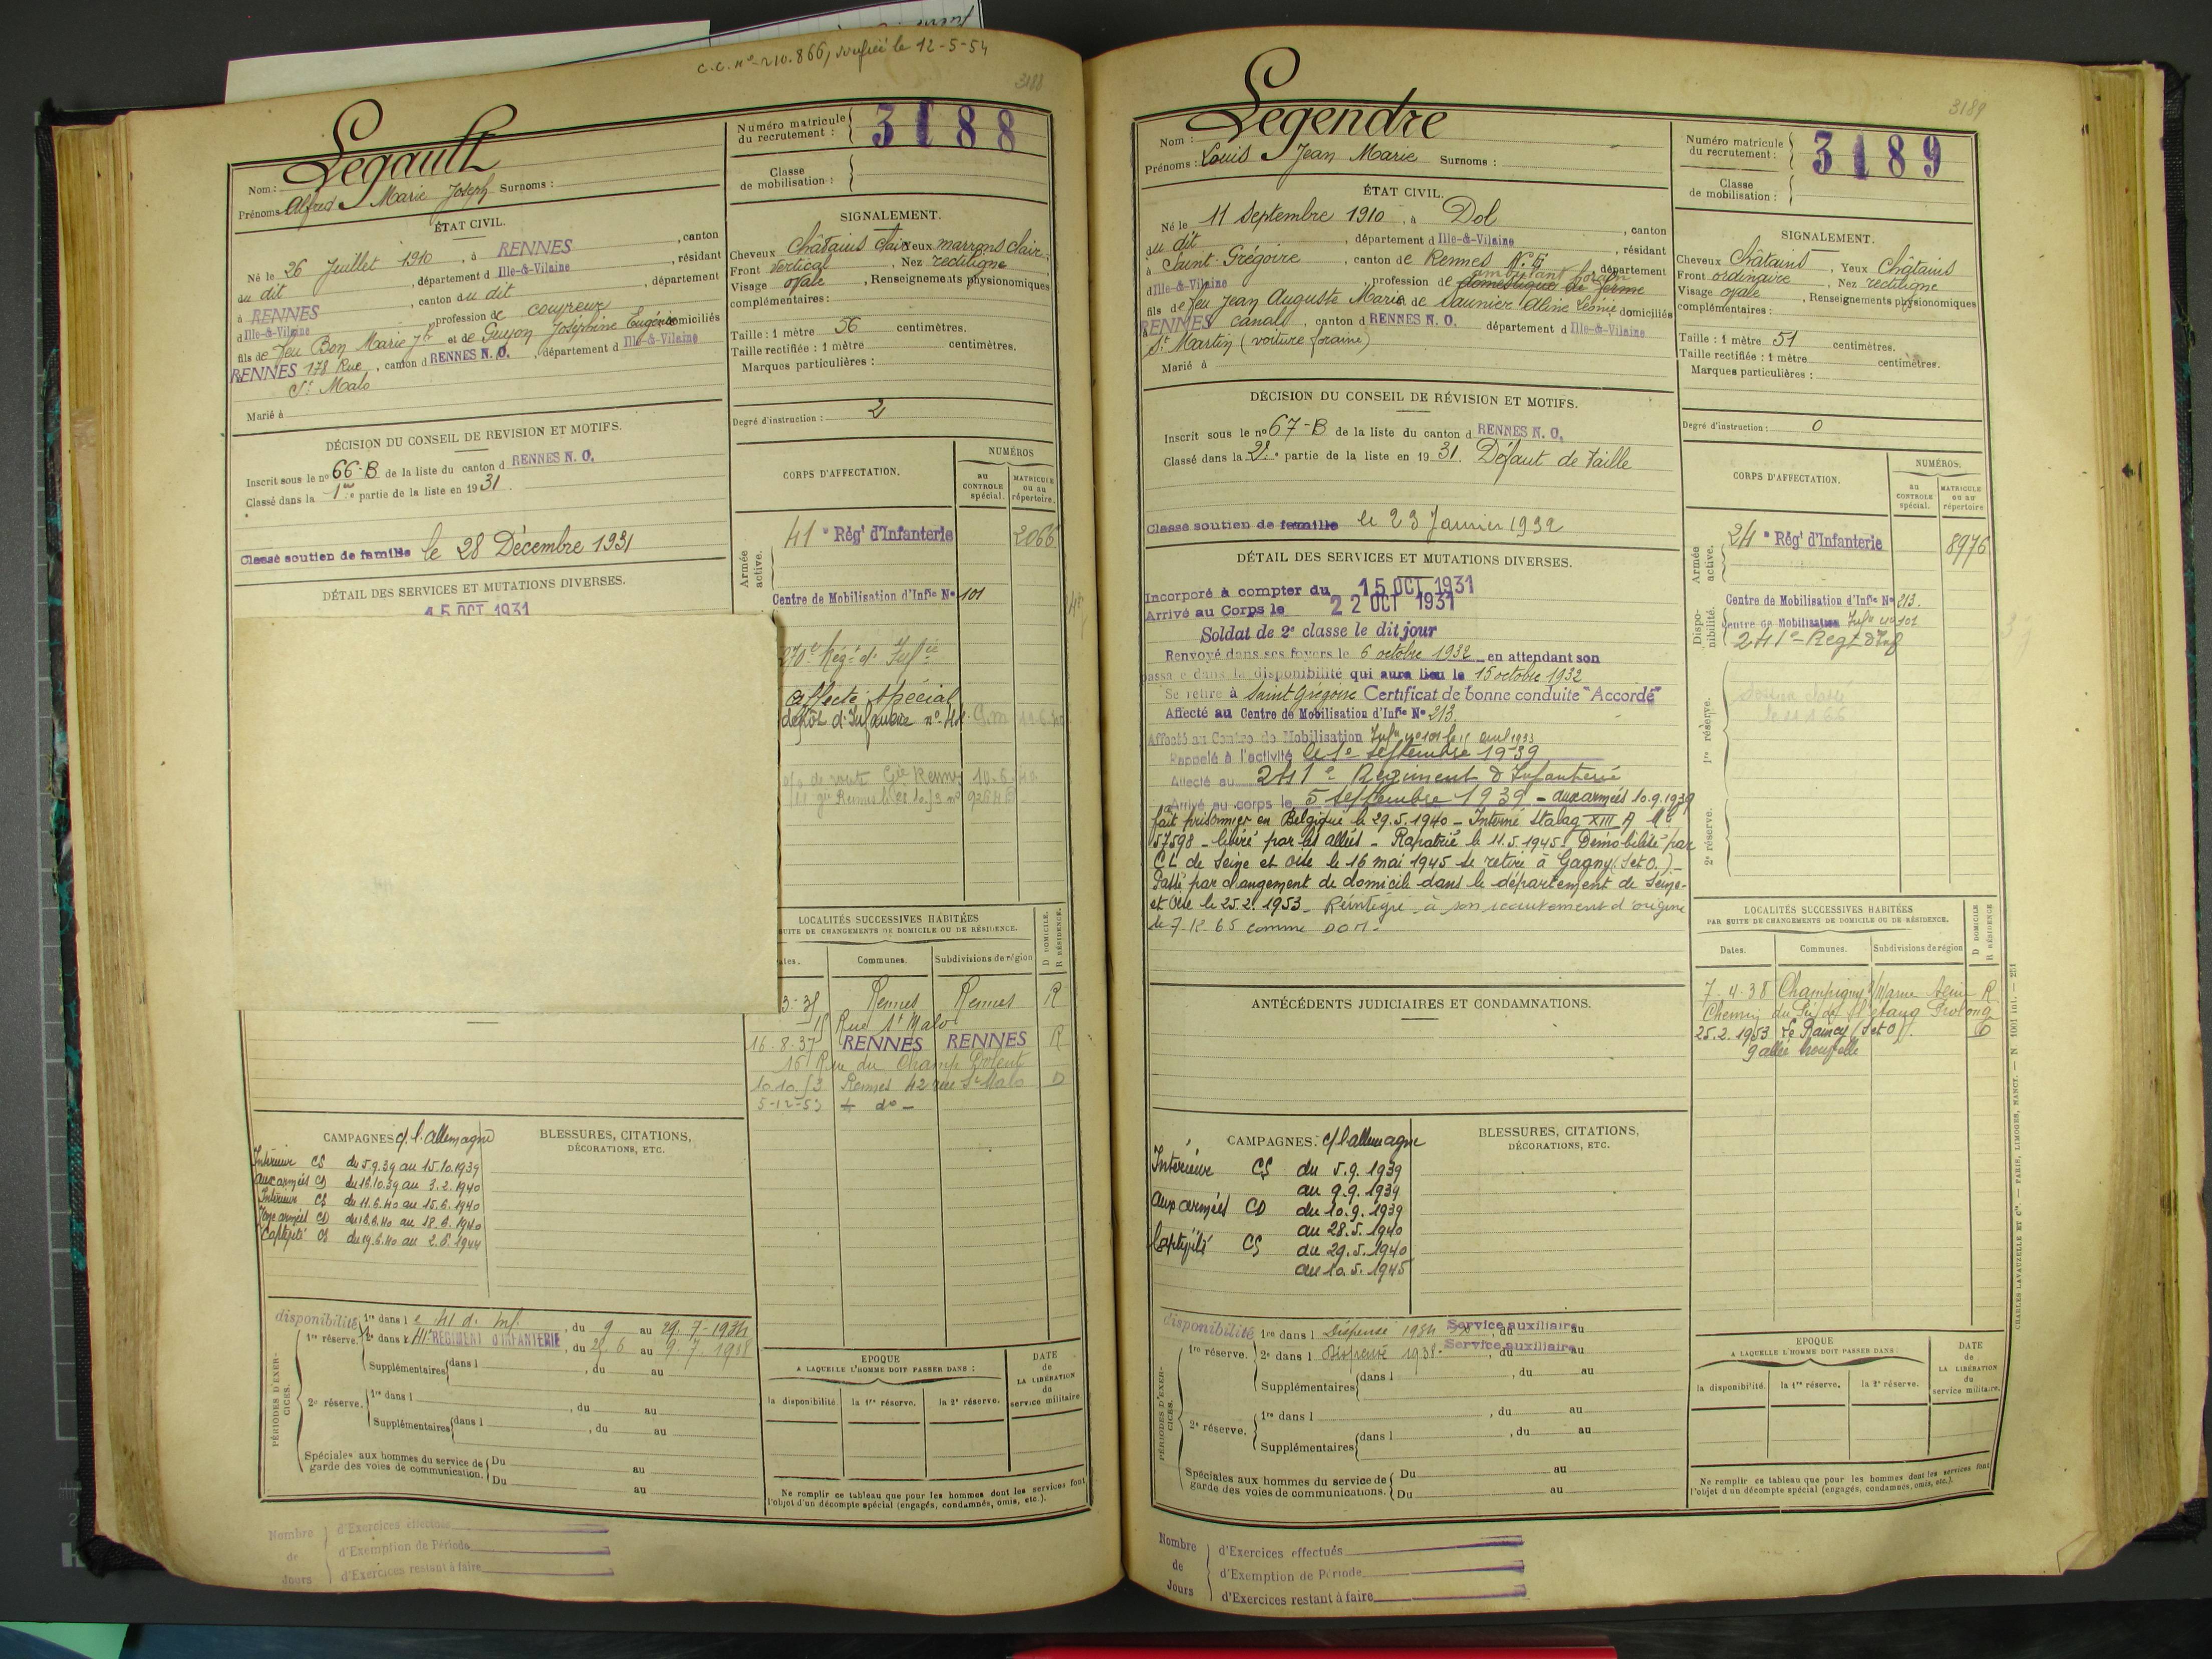 C.C. n° 210.866, le 12-5-54
3188
Legault
Nom :
Prénoms : Alfred Marie Joseph Surnoms :
Numéro matricule du recrutement : 3188
Classe de mobilisation :
ÉTAT CIVIL.
Né le 26 Juillet 1910, à RENNES, canton
du dit, département d Ille-&-Vilaine, résidant
à RENNES, canton du dit, département
d Ille-&-Vilaine, profession de couvreur
fils de feu Bon Marie Jh et de Guyon Joséphine Eugénie domiciliés
RENNES 178 Rue, canton d RENNES N. O., département d Ille-&-Vilaine
St Malo
Marié à
SIGNALEMENT.
Cheveux Châtains clair Yeux marrons clair
Front vertical, Nez rectiligne
Visage ovale, Renseignements physionomiques
complémentaires :
Taille : 1 mètre 56 centimètres.
Taille rectifiée : 1 mètre centimètres.
Marques particulières :
Degré d'instruction : 2
DÉCISION DU CONSEIL DE RÉVISION ET MOTIFS.
Inscrit sous le n° 66-B de la liste du canton d RENNES N. O.
Classé dans la 1re partie de la liste en 1931.
Classé soutien de famille le 28 Décembre 1931
DÉTAIL DES SERVICES ET MUTATIONS DIVERSES.
15 OCT 1931
CORPS D'AFFECTATION.
NUMÉROS
au CONTROLE spécial.
MATRICULE ou au répertoire.
Armée active.
41e Rég' d'Infanterie 2066
Centre de Mobilisation d'Infie N° 101
270e Régt d' Infie
Affecté spécial
dépôt d'Infanterie n° 41
de route Gie Rennes 10.6.40
LOCALITÉS SUCCESSIVES HABITÉES
SUITE DE CHANGEMENTS DE DOMICILE OU DE RÉSIDENCE.
D DOMICILE.
R RÉSIDENCE.
Communes. Subdivisions de région
Rennes Rennes R
Rue St Malo
16.8.37 RENNES RENNES R
16 Rue du Champ Dolent
10.10.53 Rennes 42 rue St Malo D
5-12-53 do
CAMPAGNES c/ l'allemagne
Intérieur CS du 5.9.39 au 15.10.1939
aux armées CD du 16.10.39 au 3.2.1940
Intérieur CS du 11.6.40 au 15.6.1940
aux armées CD du 16.6.40 au 18.6.1940
Captivité CS du 19.6.40 au 2.6.1944
BLESSURES, CITATIONS,
DÉCORATIONS, ETC.
PÉRIODES D'EXERCICES.
disponibilité 1re dans l e 41 d. inf., du 9 au 29.7-1934
1re réserve. 2e dans l 41e RÉGIMENT D'INFANTERIE, du 26.6 au 9.7.1938
Supplémentaires dans l, du au
2e réserve. 1re dans l, du au
Supplémentaires dans l, du au
Spéciales aux hommes du service de garde des voies de communication. Du au
Du au
EPOQUE
A LAQUELLE L'HOMME DOIT PASSER DANS :
la disponibilité. la 1re réserve. la 2e réserve.
DATE de LA LIBÉRATION du service militaire.
Ne remplir ce tableau que pour les hommes dont les services font
l'objet d'un décompte spécial (engagés, condamnés, omis, etc.).
Nombre de Jours
d'Exercices effectués
d'Exemption de Période
d'Exercices restant à faire
3189
Legendre
Nom :
Prénoms : Louis Jean Marie Surnoms :
Numéro matricule du recrutement : 3189
Classe de mobilisation :
ÉTAT CIVIL.
Né le 11 Septembre 1910, à Dol, canton
du dit, département d Ille-&-Vilaine, résidant
à Saint-Grégoire, canton de Rennes N.E, département
d Ille-&-Vilaine profession de domestique de ferme
ambulant forain
fils de feu Jean Auguste Marie de Saunier Aline Léonie domiciliés
RENNES canal, canton d RENNES N. O. département d Ille-&-Vilaine
St Martin (voiture foraine)
Marié à
SIGNALEMENT.
Cheveux Châtains, Yeux Châtains
Front ordinaire, Nez rectiligne
Visage ovale, Renseignements physionomiques
complémentaires :
Taille : 1 mètre 51 centimètres.
Taille rectifiée : 1 mètre centimètres.
Marques particulières :
Degré d'instruction : 0
DÉCISION DU CONSEIL DE RÉVISION ET MOTIFS.
Inscrit sous le n° 67-B de la liste du canton d RENNES N. O.
Classé dans la 2e partie de la liste en 1931. Défaut de taille
Classé soutien de famille le 23 Janvier 1932
DÉTAIL DES SERVICES ET MUTATIONS DIVERSES.
Incorporé à compter du 15 OCT 1931
Arrivé au Corps le 22 OCT 1931
Soldat de 2e classe le dit jour
Renvoyé dans ses foyers le 6 octobre 1932 en attendant son
passage dans la disponibilité qui aura lieu le 15 octobre 1932
Se retire à Saint Grégoire Certificat de bonne conduite "Accordé"
Affecté au Centre de Mobilisation d'Infie N° 213.
Affecté au Centre de Mobilisation Infie n° 101 le 15 avril 1933
Rappelé à l'activité le 1e septembre 1939
Affecté au 241e Régiment d'Infanterie
Arrivé au corps le 5 septembre 1939 - aux armées 10.9.1939
fait prisonnier en Belgique le 29.5.1940 - Interné Stalag XIII A Mle
57598 - libéré par les alliés - Rapatrié le 11.5.1945. Démobilisé par
CL de Seine et Oise le 16 mai 1945 se retire à Gagny (S et O.) -
Passé par changement de domicile dans le département de Seine-
et Oise le 25.2.1953 - Réintégré à son recrutement d'origine
le 7.12.65 comme DOM.
CORPS D'AFFECTATION.
NUMÉROS.
au CONTROLE spécial.
MATRICULE ou au répertoire
Armée active.
24e Rég' d'Infanterie 8976
Disponibilité.
Centre de Mobilisation d'Infie N° 213.
Centre de Mobilisation Infie n° 101
241e - Regt d'Inf
1re réserve.
2e réserve.
ANTÉCÉDENTS JUDICIAIRES ET CONDAMNATIONS.
LOCALITÉS SUCCESSIVES HABITÉES
PAR SUITE DE CHANGEMENTS DE DOMICILE OU DE RÉSIDENCE.
D DOMICILE
R RÉSIDENCE.
Dates. Communes. Subdivisions de région
7.4.38 Champigny s/Marne Seine R
25.2.1953 Le Raincy (S et O) D
CAMPAGNES. c/ l'allemagne
Intérieur CS du 5.9.1939
au 9.9.1939
aux armées CD du 10.9.1939
au 28.5.1940
Captivité CS du 29.5.1940
au 10.5.1945
BLESSURES, CITATIONS,
DÉCORATIONS, ETC.
PÉRIODES D'EXERCICES.
disponibilité 1re dans l Dispensé 1934 Service auxiliaire, du au
1re réserve. 2e dans l Dispensé 1938. Service auxiliaire, du au
Supplémentaires dans l, du au
2e réserve. 1re dans l, du au
Supplémentaires dans l, du au
Spéciales aux hommes du service de garde des voies de communications. Du au
Du au
EPOQUE
A LAQUELLE L'HOMME DOIT PASSER DANS
la disponibilité. la 1re réserve. la 2e réserve.
DATE de LA LIBÉRATION du service militaire.
Ne remplir ce tableau que pour les hommes dont les services font
l'objet d'un décompte spécial (engagés, condamnés, omis, etc.).
CHARLES LAVAUZELLE ET Cie. — PARIS, LIMOGES, NANCY. — N 1001 int. — 231
Nombre de Jours
d'Exercices effectués
d'Exemption de Période
d'Exercices restant à faire